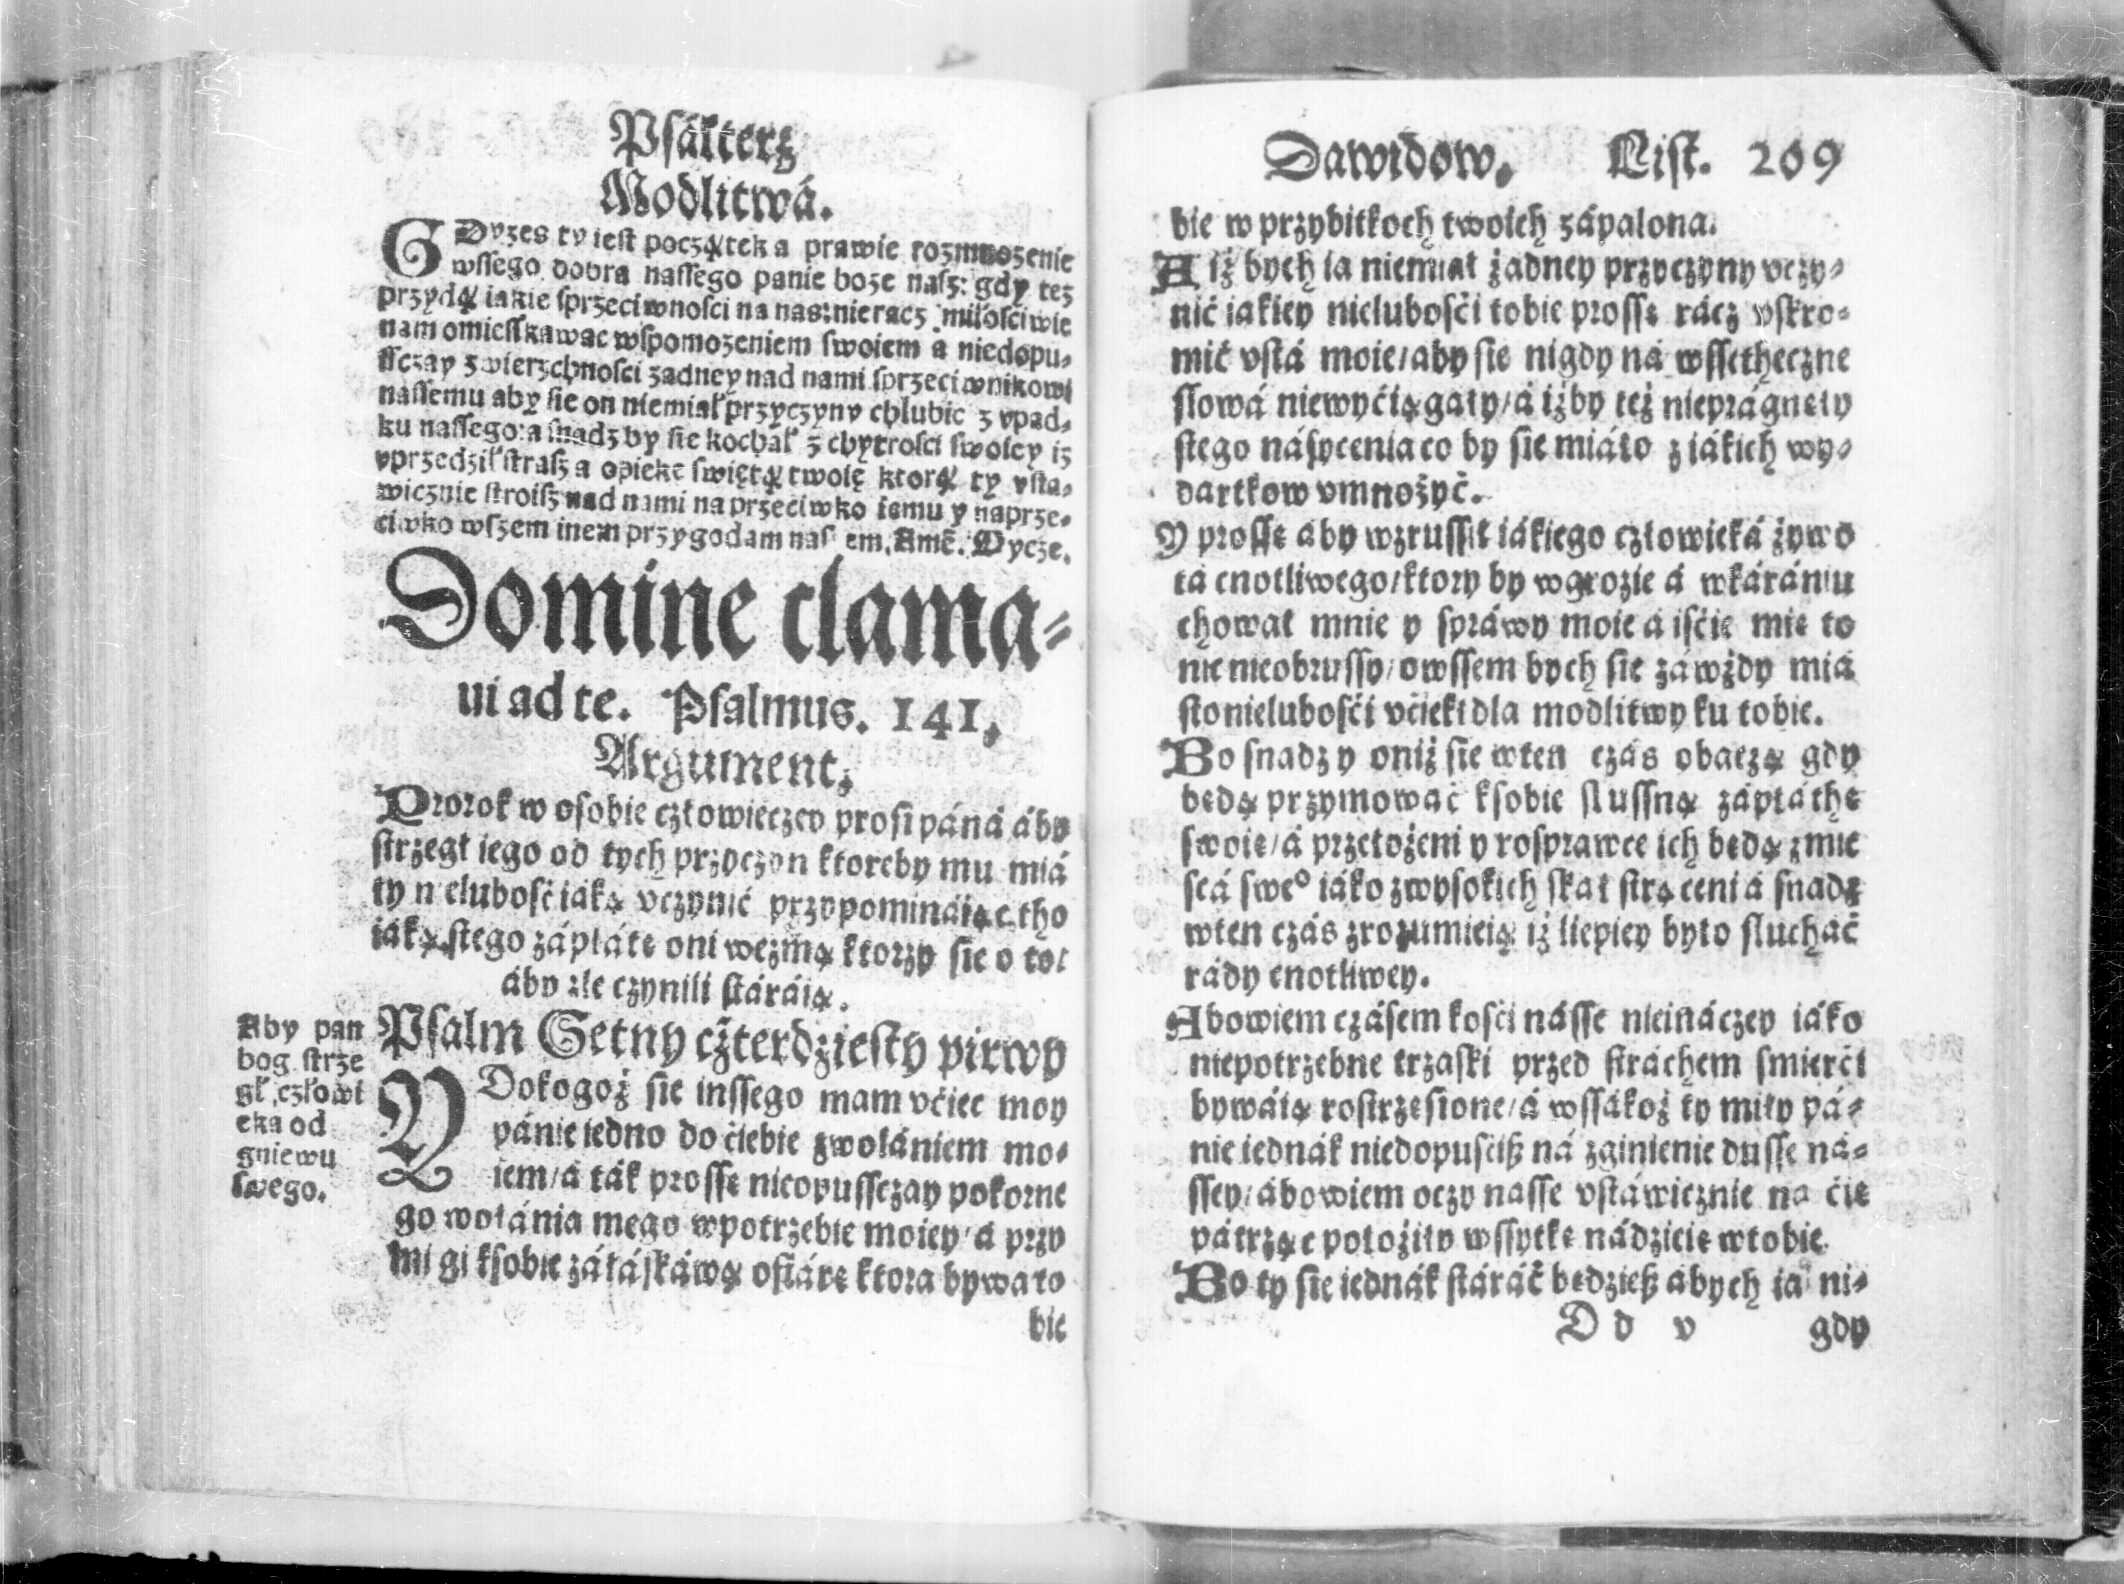 Psałterz
Modlitwá.
GDyzes ty iest początek a prawie rozmnozenie
wssego dobra nassego panie boze nasz: gdy tez
przydą iakie sprzeciwnosci na nas: nieracz miłosciwie
nam omieszkawac wspomozeniem swoiem a niedopu-
ssczay zwierzchnosci zadney nad nami sprzeciwnikowi
nassemu aby sie on niemiał przyczyny chlubic z vpad-
ku nassego: a snadz by sie kochał z chytrosci swoiey iz
vprzedził strasz a opiekę swiętą twoię ktorą ty vsta-
wicznie stroisz nad nami na przeciwko iemu y naprze-
ciwko wszem inem przygodam nas em. Amē. Dycze.
Domine clama-
ui ad te. Psalmus. 141.
Argument.
Prorok w osobie człowieczey prosi páná áby
strzegł iego od tych przyczyn ktoreby mu miá
ły nielubosć iaką vczynić przypomináiąc tho
iáką stego zápłátę oni wezmą ktorzy sie o to
aby zle czynili stáráią.
Aby pan
bog strze
gł człowi
eka od
gniewu
swego.
Psalm Setny czterdziesty pirwy
YDokogoż sie inssego mam vciec moy
pánie iedno do ciebie zwołániem mo-
iem/á ták prossę nieopussczay pokorne
go wołánia mego wpotrzebie moiey/á przy
mi gi ksobie záłáskáwą ofiárę ktora bywa to
bie
Dawidow. List. 209
bie w przybitkoch twoich zápalona.
A iż bych ia niemiał żadney przyczyny vczy-
nić iakiey nielubosći tobie prossę rácz vskro-
mić vstá moie/aby sie nigdy ná wssetheczne
słowá niewyćiągały/á iżby też nieprágnęły
stego násycenia co by sie miáło z iákich wy-
dartkow vmnożyć.
Y prossę aby wzrussił iákiego człowieká żywo
tá cnotliwego/ktory by wgrozie á wkárániu
chował mnie y spráwy moie á isćie mie to
nic nieobrussy/owssem bych sie záwżdy miá
sto nielubosći vćiekł dla modlitwy ku tobie.
Bo snadz y oniż sie wten czás obaczą gdy
będą przymować ksobie slussną zápłáthę
swoię/á przełożeni y rosprawce ich będą z mie
scá sweº iáko zwysokich skał strąceni á snadź
wten czás zrozumieią iż liepiey było słucháć
rády cnotliwey.
Abowiem czásem kosći násse nieináczey iáko
niepotrzebne trzaski przed stráchem smierći
bywáią rostrzęsione/á wssákoż ty miły pá-
nie iednák niedopusćisz ná zginienie dusse ná-
ssey/ábowiem oczy nasse vstáwicznie na ćie
pátrząc położyły wssytkę nádzieię wtobie.
Bo ty sie iednák stáráć będziesz ábych ia ni-
D d v gdy